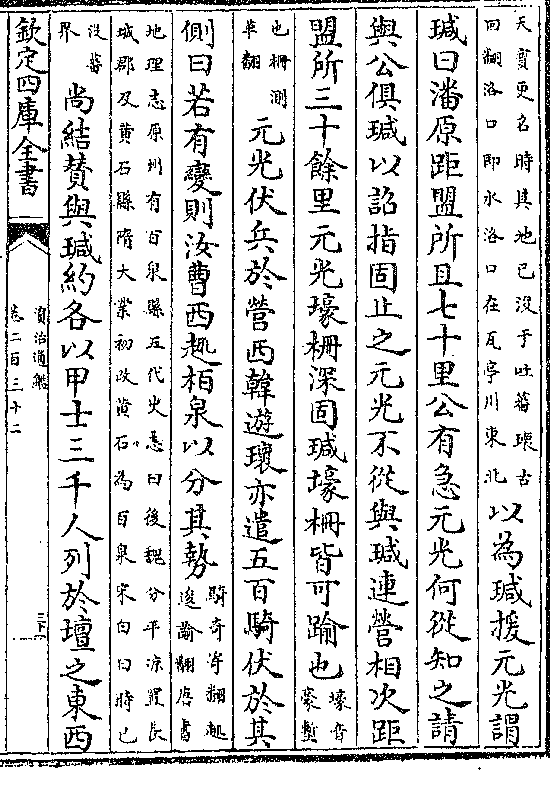 天寳更名時其地已没于吐蕃瓌古
回翻洛口即水洛口在瓦亭川東北
以為瑊援元光謂
瑊曰潘原距盟所且七十里公有急元光何從知之請
與公俱瑊以詔指固止之元光不從與瑊連營相次距
盟所三十餘里元光壕栅深固瑊壕栅皆可踰也
壕音
豪塹
也栅測
革翻
元光伏兵於營西韓遊瓌亦遣五百騎伏於其
側曰若有變則汝曹西趣柏泉以分其勢
騎奇寄翻趣
逡諭翻唐書
地理志原州有百泉縣五代史志曰後魏分平凉置長
城郡及黄石縣隋大業初改黄石為百泉宋白曰時已
没蕃
界
尚結贊與瑊約各以甲士三千人列於壇之東西
欽定四庫全書
資治通鑑
卷二百三十二